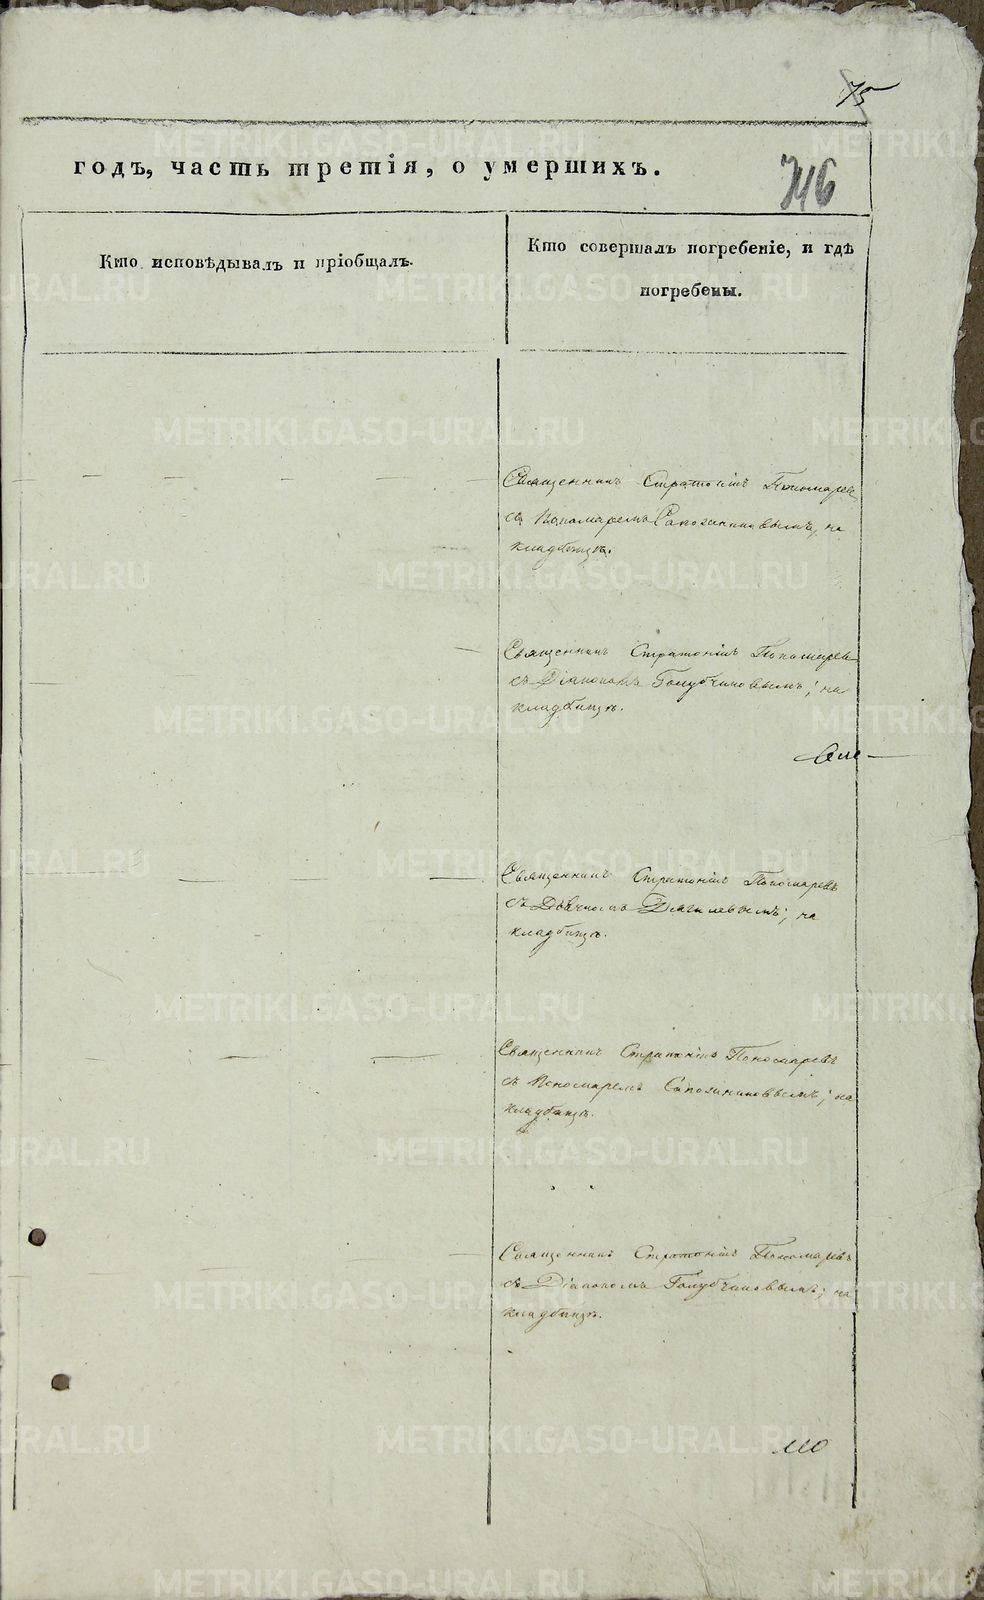 75
годъ, часть третія, о умершихъ.
746
Кто исповѣдывалъ и пріобщалъ.
Кто совершалъ погребеніе, и гдѣ
погребены.
Священникъ Стратоникъ Пономаревъ
съ Пономаремъ Сапожниковымъ, на
кладбищѣ.
Священникъ Стратоникъ Пономаревъ
съ Діакономъ Голубчиковымъ; на
кладбищѣ.
Священникъ Стратоникъ Пономаревъ
съ Дьячкомъ Дягилевымъ; на
кладбищѣ.
Священникъ Стратоникъ Пономаревъ
съ Пономаремъ Сапожниковымъ; на
кладбищѣ.
Священникъ Стратоникъ Пономаревъ
съ Діакономъ Голубчиковымъ; на
кладбищѣ.
METRIKI.GASO-URAL.RU